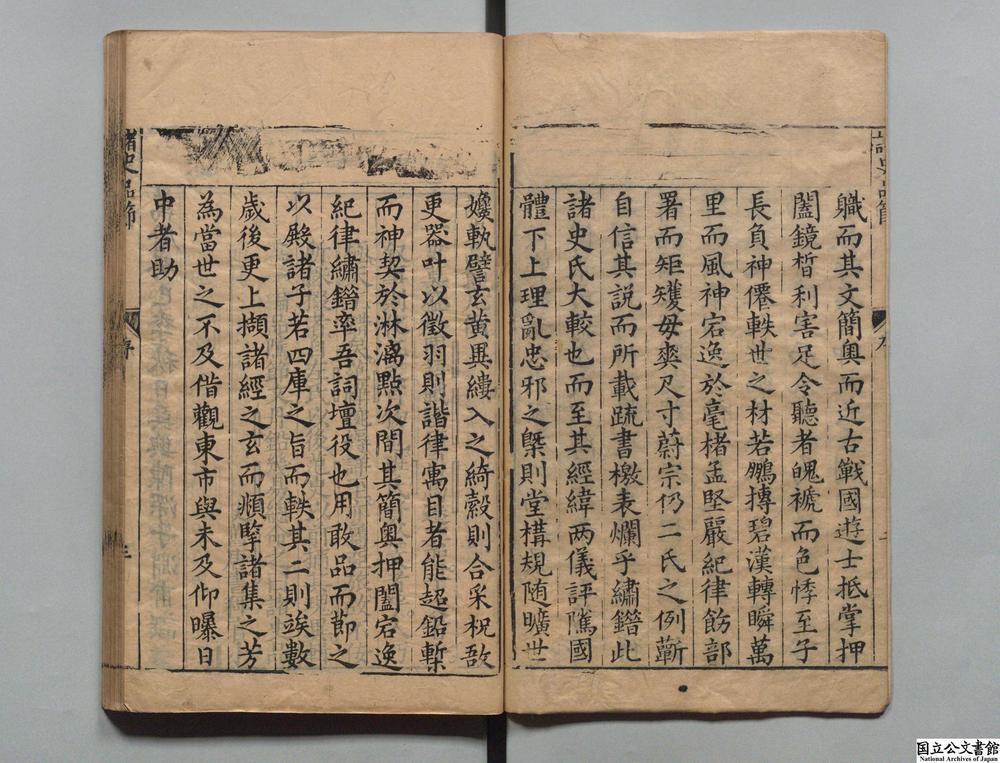 職而其文簡奧而近古戰國遊士抵掌押
闔鏡晳利害足令聽者魄褫而色悸至子
長負神僊軼世之材若鵬摶碧漢轉瞬萬
里而風神宕逸於毫楮孟堅嚴紀律飭部
署而矩矱毋爽尺寸蔚宗仍二氏之例蘄
自信其說而所載疏書檄表爛乎繡鍇此
諸史氏大較也而至其經緯两儀評隲國
體下上理亂忠邪之槩則堂構規随曠世
孅軌譬玄黄異縷入之綺縠則合采柷敔
更器叶以徵羽則諧律寓目者能超鉛槧
而神契於淋漓點次間其簡奧押闔宕逸
紀律繡鍇率吾詞壇役也用敢品而節之
以殿諸子若四庫之旨而軼其二則竢數
歲後更上擷諸經之玄而頫擥諸集之芳
為當世之不及借觀東市與未及仰曝日
中者助
諸史品節
序
三
国立公文書館
National Archives of Japan